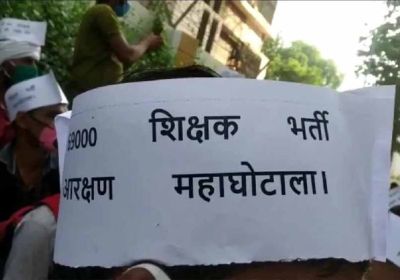 69000 शिक्षक भर्ती
आरक्षण महाघोटाला।